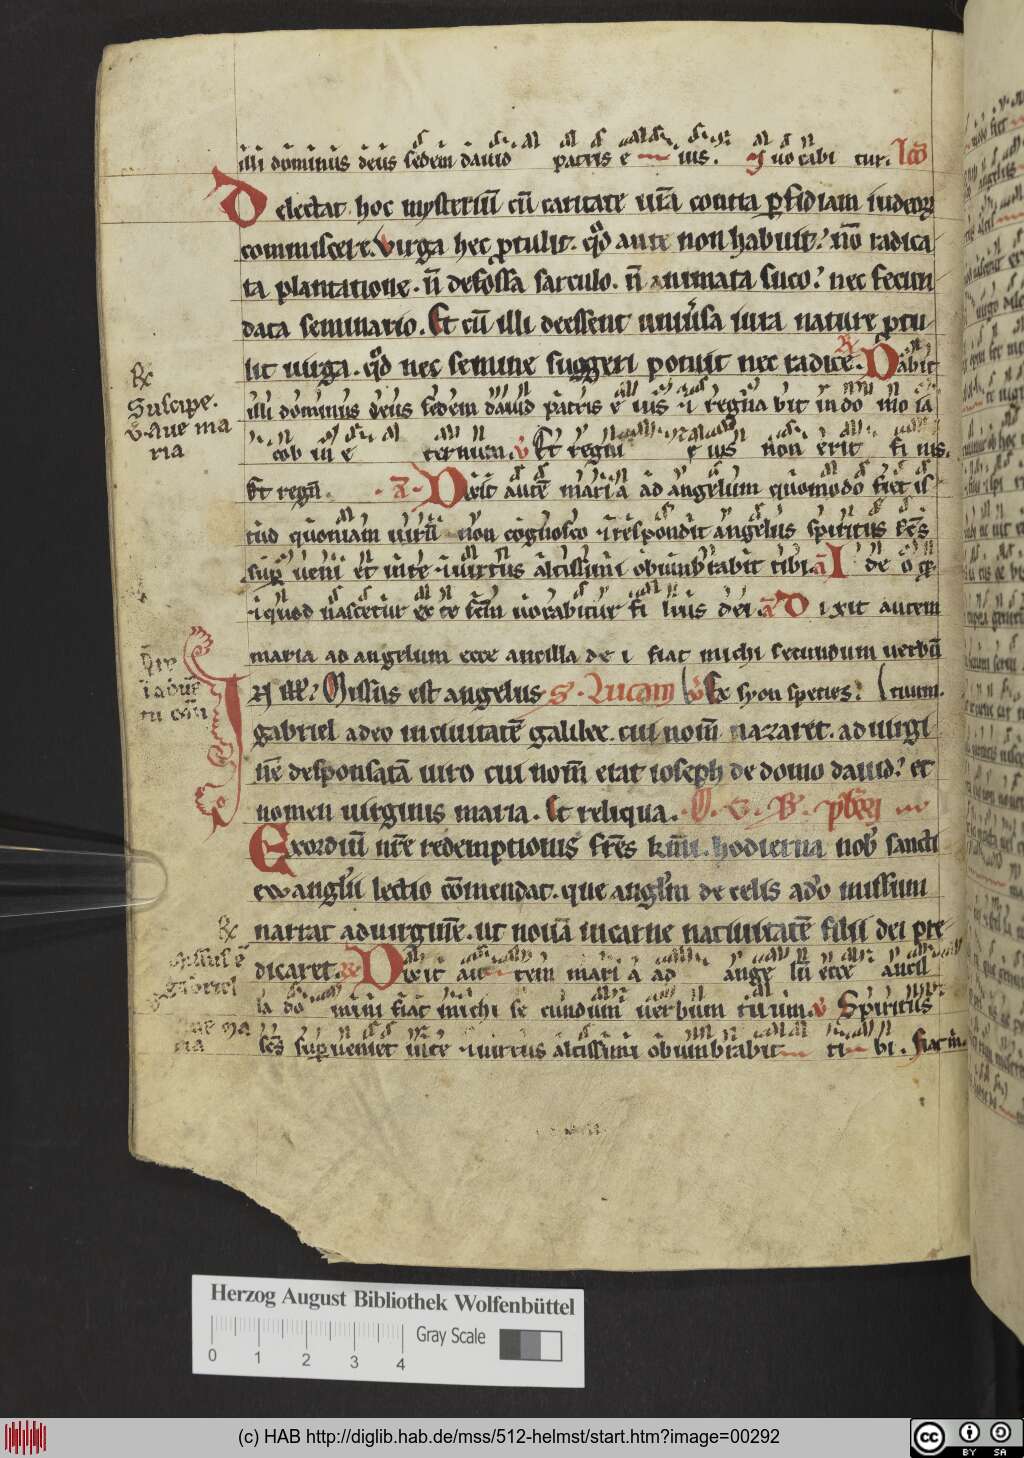 illi dominus deus sedem dauid patris e ius. G uocabi tur. Lco
Delectat hoc mysteriū cū caritate urā contra pfidiam iudeorū
commiscere. Virga hec ptulit. qd ante non habuit. nō radica
ta plantatione. n̄ defossa sarculo. n̄ animata suco. nec fecun
data seminario. Et cū illi deessent uniūsa iura nature ptu
lit uirga. qd nec semine suggeri potuit nec radice. R Dabit
illi dominus deus sedem dauid patris e ius i regna bit in do mo ia
cob in e ternum. v Et regni e ius non erit fi nis.
Et regn. a Dixit autē maria ad angelum quomodo fiet is
tud quoniam uirū non cognosco i respondit angelus spiritus scs
sup ueni et in te i uirtus altissimi obumbrabit tibi. a I de o q
i quod nascetur ex te scm uocabitur fi lius dei. a D ixit autem
maria ad angelum ecce ancilla de i fiat michi secundum uerbū
In ill. Missus est angelus S. Lucam v Ex syon species. tuum.
gabriel a deo in ciuitatē galilee. cui nom̄ nazaret. ad uirgi
nē desponsatā uiro cui nom̄ erat ioseph de domo dauid. et
nomen uirginis maria. Et reliqua. O. V. B. pbri
Exordiū nrē redemptionis frēs kmi. hodierna nob sancti
ewanglii lectio cōmendat. que anglm de celis a do missum
narrat ad uirginē. ut nouā in carne natiuitatē filii dei pre
dicaret. R Dixit au tem mari a ad ange lū ecce ancil
la do mini fiat michi se cundum uerbum tuum. v Spiritus
scs superueniet in te i uirtus altissimi obumbrabit ti bi. Fiat m.
R
Suscipe.
v. Aue ma
ria
R
Missus ē
gabriel
ue ma
ria
Herzog August Bibliothek Wolfenbüttel
Gray Scale
0 1 2 3 4
(c) HAB http://diglib.hab.de/mss/512-helmst/start.htm?image=00292
cc BY SA